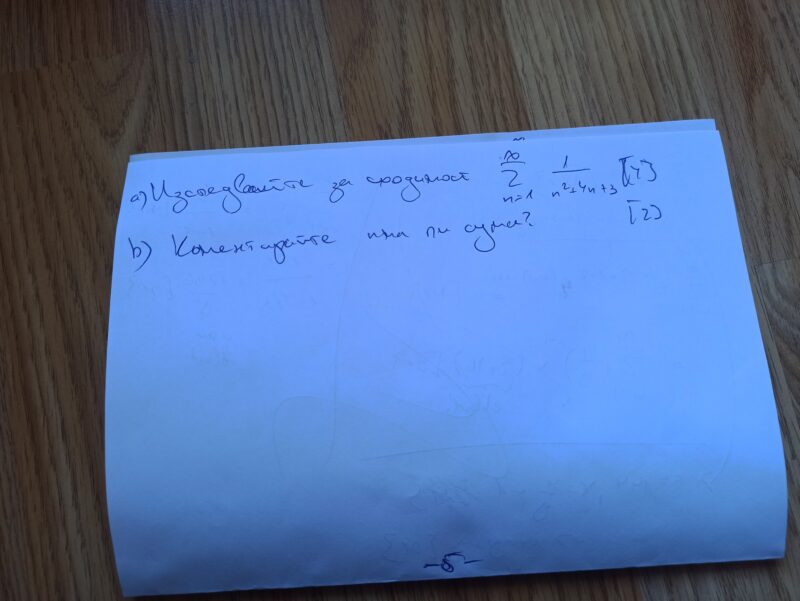 а) Изследвайте за сходимост ∞ Σ n=1 1/(n²+4n+3) [4]
b) Коментирайте има ли сума? [2]
-5-